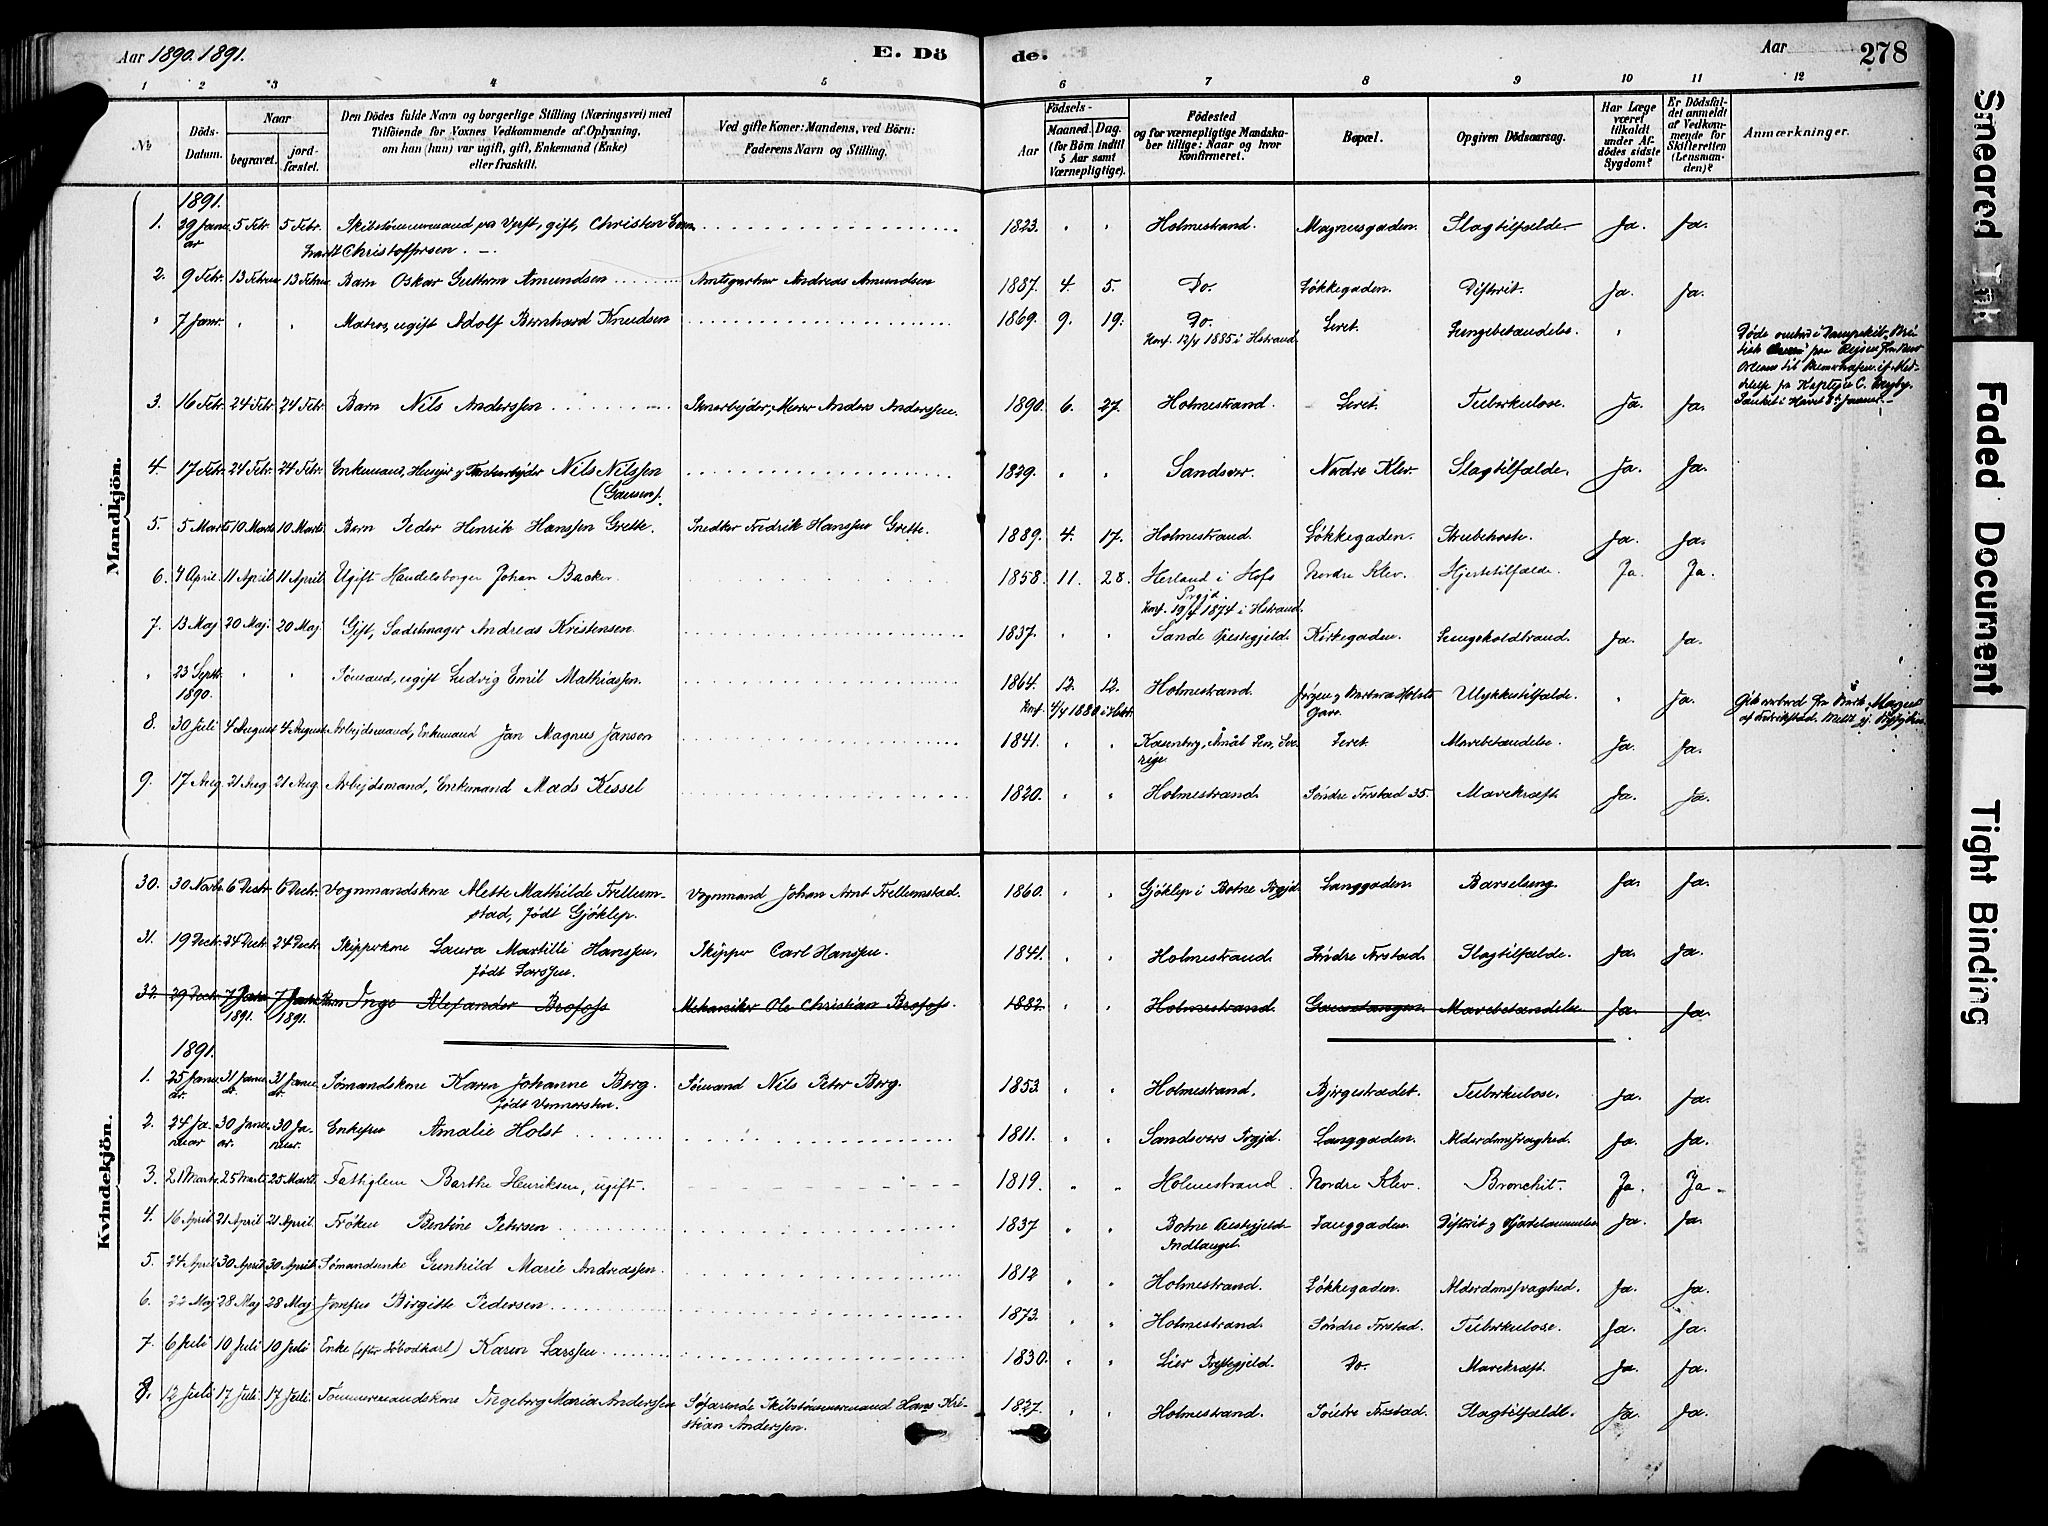 Aar 1890. 1891.
E. Dö
de.
Aar
278
1 2 3 4 5 6 7 8 9 10 11 12
No
Döds-Datum.
Naar
begravet.
jordfæstet.
Den Dödes fulde Navn og borgerlige Stilling (Næringsvei) med
Tilföiende for Voxnes Vedkommende af Oplysning,
om han (hun) var ugift, gift, Enkemand (Enke)
eller fraskilt.
Ved gifte Koner: Mandens, ved Börn:
Faderens Navn og Stilling.
Födsels-
Aar
Maaned. Dag.
(for Börn indtil
5 Aar samt
Værnepligtige).
Födested
og for værnepligtige Mandskaber
tillige: Naar og hvor
konfirmeret.
Bopæl.
Opgiven Dödsaarsag.
Har Læge
været
tilkaldt
under Afdödes
sidste
Sygdom?
Er Dödsfaldet
anmeldt
af Vedkommende
for
Skifteretten
(Lensmanden)?
Anmærkninger.
Mandkjön.
1891.
1. 29 Januar 5 Febr. 5 Febr. gift, Christen
Christoffersen. 1823. " " Holmestrand. Magnusgaden. Slagtilfælde. Ja. Ja.
2. 9 Febr. 13 Februar 13 Februar Barn Oskar Guttorm Amundsen Amtsgartner Andreas Amundsen 1887. 4. 5. Do. Løkkegaden. Difterit. Ja. Ja.
" 7 Janr. " " Matros, ugift Adolf Bernhard Knudsen 1869. 9. 19. Do. Leret. Lungebetændelse. "
Konf. 12/4 1885 i Hstrand.
3. 16 Febr. 24 Febr. 24 Febr. Barn Nils Anderssen Anders Anderssen. 1890. 6. 27. Holmestrand. Leret. Tuberkulose. Ja. Ja.
4. 17 Febr. 24 Febr. 24 Febr. Enkemand, Nils Nilssen 1829. " " Sandsver. Nordre Klev. Slagtilfælde. Ja. Ja.
5. 5 Marts 10 Marts 10 Marts Barn Peder Henrik Hanssen Grette. Snedker Fredrik Hanssen Grette. 1889. 4. 17. Holmestrand. Løkkegaden. Strubehoste. Ja. Ja.
6. 4 April. 11 April 11 April Ugift Handelsborger Johan Backer. 1858. 11. 28. Herland i Hofs
Prgjd. Nordre Klev. Hjertetilfælde. Ja. Ja.
Konf. 19/4 1874 i Hstrand.
7. 13 Maj 20 Maj. 20 Maj. Gift, Sadelmager Andreas Kristensen. 1837. " " Sande Præstegjeld. Kirkegaden. Lungekoldbrand. Ja. Ja.
" 23 Septr.
1890. " " Sømand, ugift Ludvig Emil Mathiassen. 1864. 12. 12. Holmestrand. Jørgen og Barbara Holsts
Gave. Ulykkestilfælde. " Ja.
Konf. 4/4 1880 i Holst.
8. 30 Juli 4 August 4 August Arbejdsmand, Enkemand Jan Magnus Janson 1841. " " Åmål Len, Sverige. Leret. Mavebetændelse. Ja. Ja.
9. 17 Aug. 21 Aug 21 Aug. Arbejdsmand, Enkemand Mads Kessel 1820. " " Holmestrand. Søndre Forstad 35. Mavekræft. Ja. Ja.
Kvindekjön.
30. 30 Novbr. 6 Decbr. 6 Decbr. Vognmandskone Mette Mathilde Trellemstad,
født Gjøklep. Vognmand Johan Arnt Trellemstad. 1860. " " Gjøklep i Botne Prgjd. Langgaden. Barselseng. Ja. Ja.
31. 19 Decbr. 24 Decbr. 24 Decbr. Skipperkone Laura Martilli Hanssen,
født Larssen. Skipper Carl Hanssen. 1841. " " Holmestrand. Søndre Forstad. Slagtilfælde. Ja. Ja.
32. 29 Decbr. 7 Janr. 1891. 7 Janr. 1891. Barn Inge Alexander Brofoss Mekaniker Ole Christian Brofoss. 1882. " " Holmestrand. Gausetangen. Mavebetændelse. Ja. Ja.
1891.
1. 25 Januar. 31 Januar. 31 Januar. Sømandskone Karen Johanne Berg. Sømand Nils Peter Berg. 1853. " " Holmestrand. Bjergestrædet. Tuberkulose. Ja. Ja.
2. 24 Januar 30 Januar. 30 Januar. Enkefru Amalie Holst 1811. " " Sandsvers Prgjd. Langgaden. Alderdomssvaghed. Ja. Ja.
3. 21 Marts 25 Marts 25 Marts Fattiglem Barthe Henriksen, ugift. 1819. " " Holmestrand. Nordre Klev. Bronchit. Ja. Ja.
4. 16 April 21 April 21 April. Frøken Bentine Petersen 1837 " " Botne Præstegjeld Langgaden. Difterit og Ja. Ja.
5. 24 April 30 April 30 April Sømandsenke Gunhild Marie Andreassen. 1812 " " Holmestrand. Løkkegaden. Alderdomssvaghed. Ja. Ja.
6. 22 Maj 28 Maj 28 Maj Jomfru Birgitte Pedersen 1873. " " Holmestrand. Søndre Forstad. Tuberkulose. Ja. Ja.
7. 6 Juli 10 Juli 10 Juli Enke Karen Larssen 1830. " " Lier Præstegjeld. Do. Mavekræft. Ja. Ja.
8. 12 Juli 17 Juli 17 Juli. Tømmermandskone Ingeborg Maria Anderssen Søfarende Skibstømmermand Hans Kristian
Anderssen. 1827. " " Holmestrand. Søndre Forstad. Slagtilfælde. Ja. Ja.
Smeared Ink
Faded Document
Tight Binding